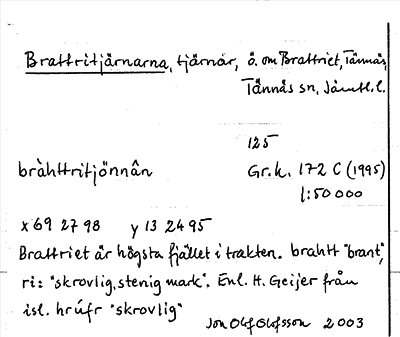 Brattritjärnarna, tjärnar, ö. om Brattriet, Tännäs,
Tännäs sn, Jämtl. l.
125
bràhttritjönnân Gr.k. 172 C (1995)
1:50 000
x 69 27 98 y 13 24 95
Brattriet är högsta fjället i trakten. brahtt "brant",
ri: "skrovlig, stenig mark". Enl. H. Geijer från
isl. hrúfr "skrovlig"
Jon Olof Olofsson 2003